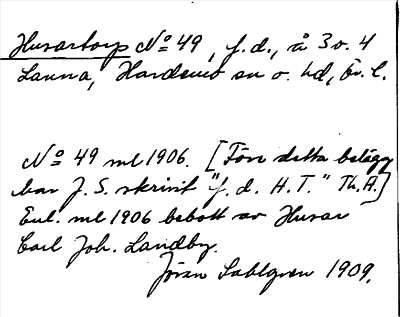 Husartorp No 49, f.d., å 3 o. 4
Lanna, Hardemo sn o. hd, Ör. l.
No 49 ml 1906. [Före detta belägg
har J. S. skrivit "f. d. H. T." Th.A.]
Enl. ml 1906 bebott av Husar
Carl Joh. Landby.
Jöran Sahlgren 1909.